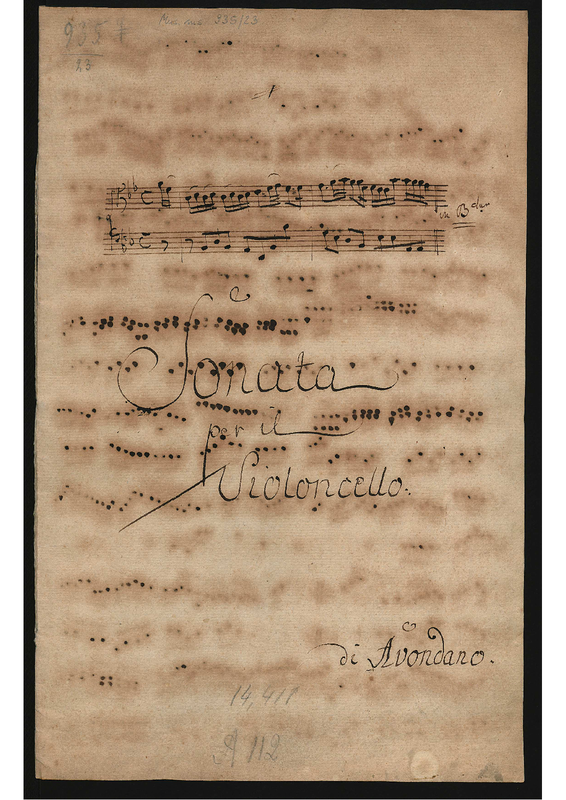 Mus. ms. 935/23
935
23
in B dur
Sonata
per il
Violoncello.
di Avondano.
14,411
A 112